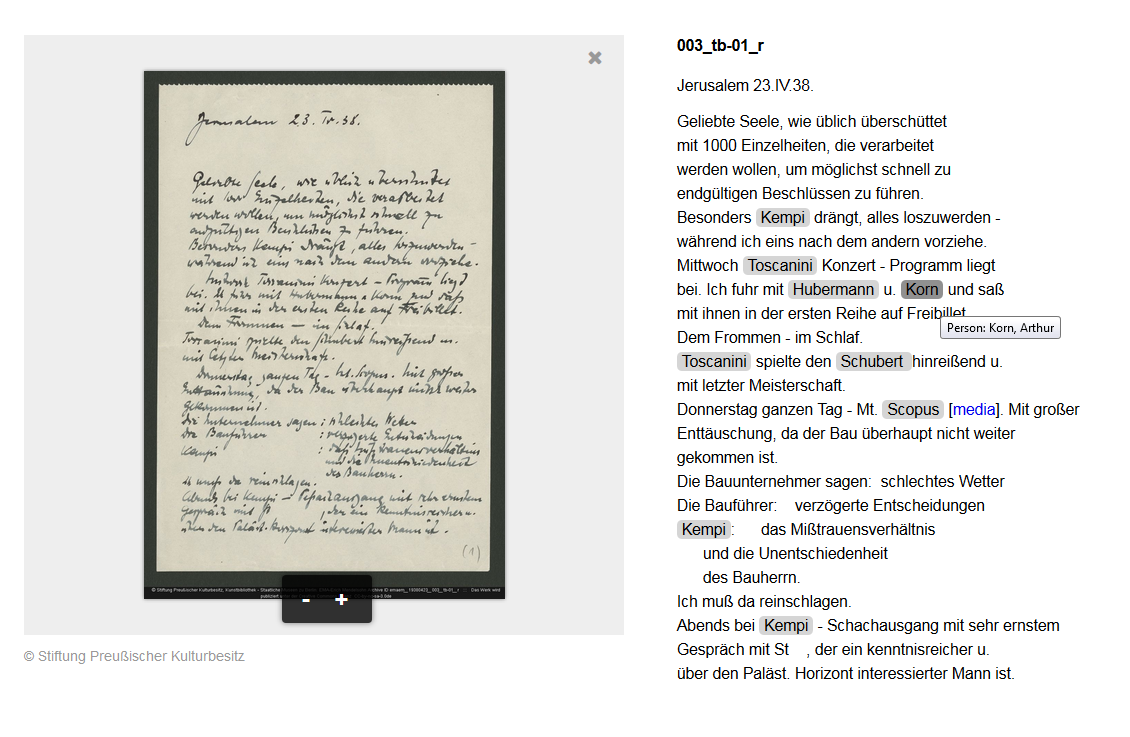 Jerusalem 23. IV. 38.
Geliebte Seele, wie üblich überschüttet
mit 1000 Einzelheiten, die verarbeitet
werden wollen, um möglichst schnell zu
endgültigen Beschlüssen zu führen.
Besonders Kempi drängt, alles loszuwerden -
während ich eins nach dem andern vorziehe.
Mittwoch Toscanini Konzert - Programm liegt
bei. Ich fuhr mit Hubermann u. Korn und saß
mit ihnen in der ersten Reihe auf Freibillet.
Dem Frommen - im Schlaf.
Toscanini spielte den Schubert hinreißend u.
mit letzter Meisterschaft.
Donnerstag ganzen Tag - Mt. Scopus. Mit großer
Enttäuschung, da der Bau überhaupt nicht weiter
gekommen ist.
Die Unternehmer sagen: schlechtes Wetter
Die Bauführer : verzögerte Entscheidungen
Kempi : das Mißtrauensverhältnis
und die Unentschiedenheit
des Bauherrn.
Ich muß da reinschlagen.
Abends bei Kempi - Schachausgang mit sehr ernstem
Gespräch mit St , der ein kenntnisreicher u.
über den Paläst. Horizont interessierter Mann ist.
(1)
- +
© Stiftung Preußischer Kulturbesitz
003_tb-01_r
Jerusalem 23.IV.38.
Geliebte Seele, wie üblich überschüttet
mit 1000 Einzelheiten, die verarbeitet
werden wollen, um möglichst schnell zu
endgültigen Beschlüssen zu führen.
Besonders Kempi drängt, alles loszuwerden -
während ich eins nach dem andern vorziehe.
Mittwoch Toscanini Konzert - Programm liegt
bei. Ich fuhr mit Hubermann u. Korn und saß
mit ihnen in der ersten Reihe auf Freibillet
Person: Korn, Arthur
Dem Frommen - im Schlaf.
Toscanini spielte den Schubert hinreißend u.
mit letzter Meisterschaft.
Donnerstag ganzen Tag - Mt. Scopus [media]. Mit großer
Enttäuschung, da der Bau überhaupt nicht weiter
gekommen ist.
Die Bauunternehmer sagen: schlechtes Wetter
Die Bauführer: verzögerte Entscheidungen
Kempi: das Mißtrauensverhältnis
und die Unentschiedenheit
des Bauherrn.
Ich muß da reinschlagen.
Abends bei Kempi - Schachausgang mit sehr ernstem
Gespräch mit St , der ein kenntnisreicher u.
über den Paläst. Horizont interessierter Mann ist.